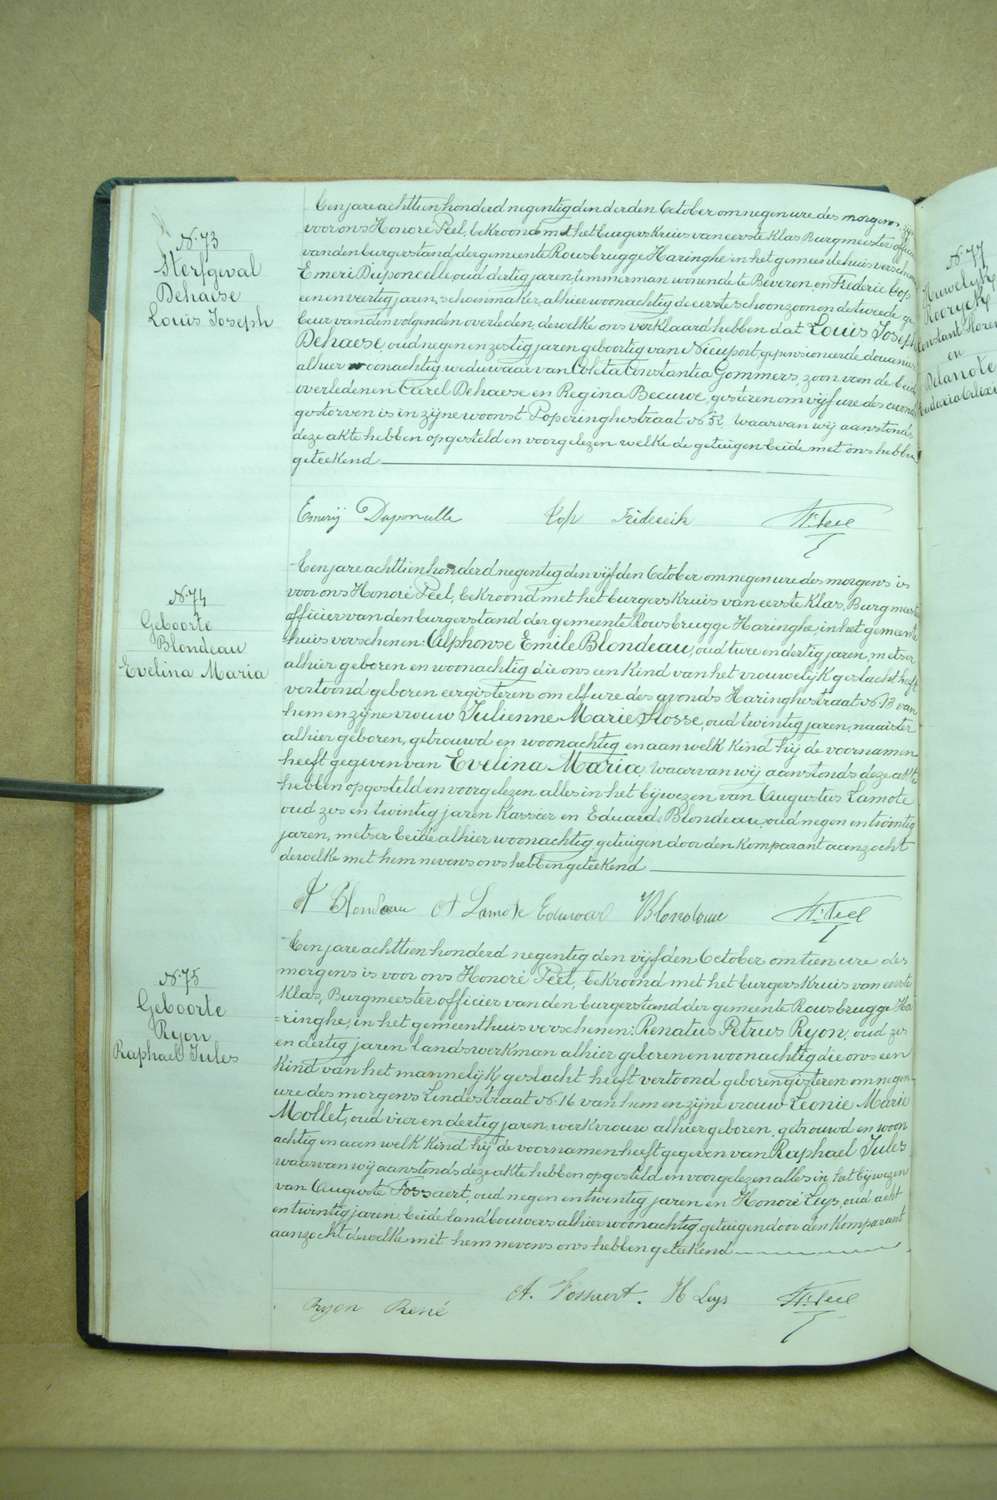 N. 73
Sterfgeval
Dehaese
Louis Joseph
Een jare achttien honderd negentig den derden October om negen ure des morgens is
voor ons Honoré Peel, bekroond met het burgerskruis van eerste Klas Burgmeester officier
van den burgerstand der gemeente Rousbrugge Haringhe in het gemeentehuis verschenen
Emeri Duponcelle, oud dertig jaren, timmerman wonende te Beveren en Frederic Cop
een en veertig jaren, schoenmaker, alhier woonachtig de eerste schoonzoon en de tweede ge
beur van den volgenden overleden, dewelke ons verklaard hebben dat Louis Joseph
Dehaese, oud negen en zestig jaren geboortig van Nieuport, gepensioneerde douanier
alhier woonachtig weduwaar van Coleta Constantia Gommers, zoon van de beide
overledenen Carel Dehaese en Regina Becuwe, gisteren om vijf ure des avonds
gestorven is in zijne woonst Poperinghestraat N. 52, Waarvan wij aanstonds
deze akte hebben opgesteld en voorgelezen welke de getuigen beide met ons hebben
geteekend
Emerij Duponcelle Cop Friderik Hre Peel
N. 74
Geboorte
Blondeau
Evelina Maria
Een jare achttien honderd negentig den vijfden October om negen ure des morgens is
voor ons Honoré Peel, bekroond met het burgerskruis van eerste Klas, Burgmeester
officier van den burgerstand der gemeente Rousbrugge Haringhe, in het gemeente
huis verschenen: Alphonse Emile Blondeau, oud twee en dertig jaren, metser
alhier geboren en woonachtig die ons een Kind van het vrouwelijk geslacht heeft
vertoond geboren eergisteren om elf ure des avonds Haringhestraat N. 13 van
hem en zijne vrouw Julienne Marie Flosse, oud twintig jaren, naaister
alhier geboren, getrouwd en woonachtig en aan welk Kind hij de voornamen
heeft gegeven van Evelina Maria, Waarvan wij aanstonds deze akte
hebben opgesteld en voorgelezen alles in het bijwezen van Augustus Lamote
oud zes en twintig jaren Kassier en Eduard Blondeau, oud negen en twintig
jaren, metser beide alhier woonachtig, getuigen door den Komparant aanzocht
dewelke met hem nevens ons hebben geteekend
A Blondeau A Lamote Eduward Blondeau Hre Peel
N. 75
Geboorte
Ryon
Raphael Jules
Een jare achttien honderd negentig den vijfden October om tien ure des
morgens is voor ons Honoré Peel, bekroond met het burgers Kruis van eerste
Klas, Burgmeester officier van den burgerstand der gemeente Rousbrugge Ha
=ringhe, in het gemeenthuis verschenen: Renatus Petrus Ryon, oud zes
en dertig jaren landswerkman alhier geboren en woonachtig die ons een
Kind van het mannelijk geslacht heeft vertoond geboren gisteren om negen
ure des morgens Lindestraat N. 16 van hem en zijne vrouw Leonie Marie
Mollet, oud vier en dertig jaren, werkvrouw alhier geboren, getrouwd en woon
achtig en aan welk Kind hij de voornamen heeft gegeven van Raphael Jules
waarvan wij aanstonds deze akte hebben opgesteld en voorgelezen alles in het bijwezen
van Auguste Fossaert, oud negen en twintig jaren en Honoré Leys, oud acht
en twintig jaren beide landbouwers alhier woonachtig, getuigen door den Komparant
aanzocht dewelke met hem nevens ons hebben geteekend
Ryon René A. Fossaert. H Leys Hre Peel
N. 77
Huwelijk
en
Delanote